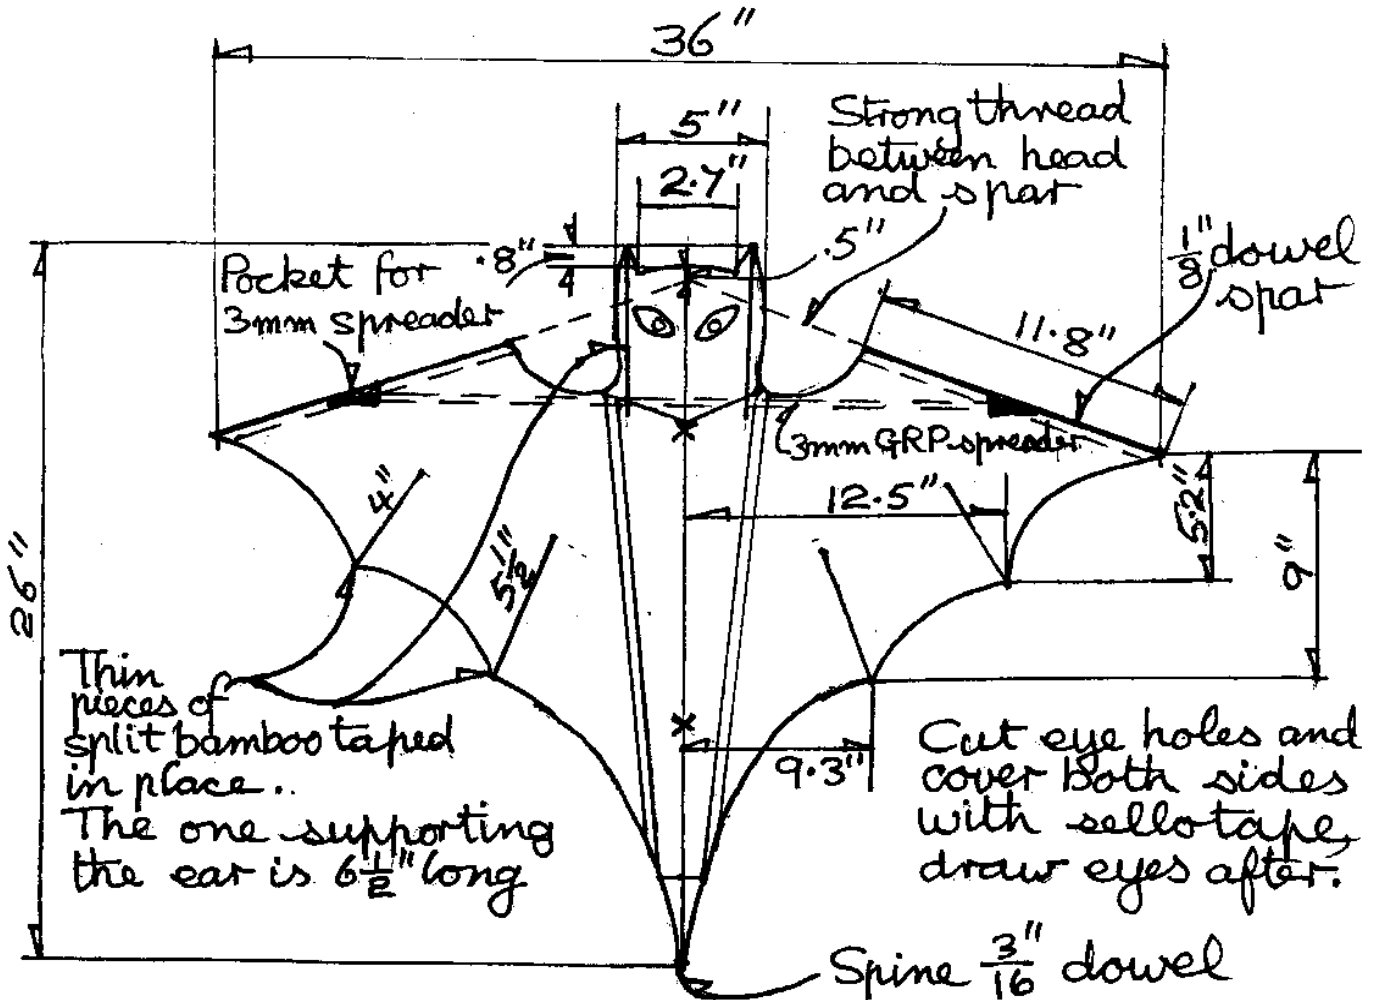 36"
5"
2.7"
Strong thread
between head
and spar
.8"
.5"
1/8" dowel
spar
Pocket for
3mm spreader
11.8"
3mm GRP spreader
4"
12.5"
5.2"
5 1/2"
9"
26"
Thin
pieces of
split bamboo taped
in place..
The one supporting
the ear is 6 1/2" long
9.3"
Cut eye holes and
cover both sides
with sellotape,
draw eyes after.
Spine 3/16" dowel